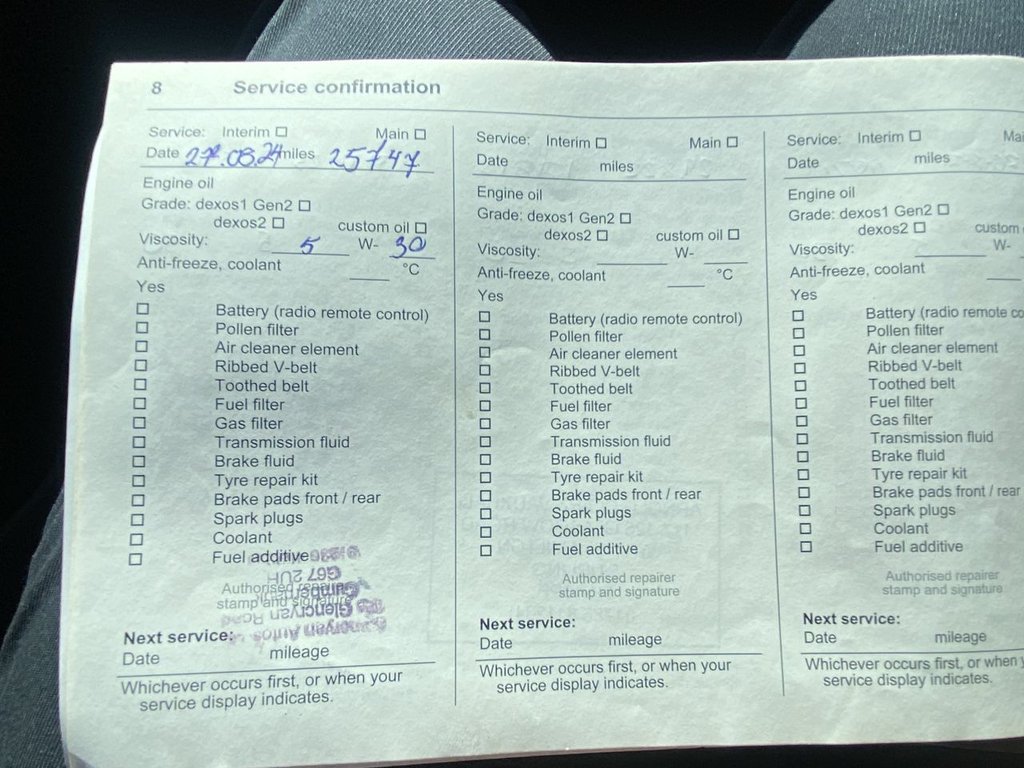 8 Service confirmation
Service: Interim ☐ Main ☐
Date 27.08.24 miles 25747
Engine oil
Grade: dexos1 Gen2 ☐
dexos2 ☐ custom oil ☐
Viscosity: 5 W- 30
Anti-freeze, coolant °C
Yes
☐ Battery (radio remote control)
☐ Pollen filter
☐ Air cleaner element
☐ Ribbed V-belt
☐ Toothed belt
☐ Fuel filter
☐ Gas filter
☐ Transmission fluid
☐ Brake fluid
☐ Tyre repair kit
☐ Brake pads front / rear
☐ Spark plugs
☐ Coolant
☐ Fuel additive
Authorised repairer
stamp and signature
Glencryan Autos
Glencryan Road
Cumbernauld
G67 2UH
Next service:
Date mileage
Whichever occurs first, or when your
service display indicates.
Service: Interim ☐ Main ☐
Date miles
Engine oil
Grade: dexos1 Gen2 ☐
dexos2 ☐ custom oil ☐
Viscosity: W-
Anti-freeze, coolant °C
Yes
☐ Battery (radio remote control)
☐ Pollen filter
☐ Air cleaner element
☐ Ribbed V-belt
☐ Toothed belt
☐ Fuel filter
☐ Gas filter
☐ Transmission fluid
☐ Brake fluid
☐ Tyre repair kit
☐ Brake pads front / rear
☐ Spark plugs
☐ Coolant
☐ Fuel additive
Authorised repairer
stamp and signature
Next service:
Date mileage
Whichever occurs first, or when your
service display indicates.
Service: Interim ☐ Ma
Date miles
Engine oil
Grade: dexos1 Gen2 ☐
dexos2 ☐ custom
Viscosity: W-
Anti-freeze, coolant
Yes
☐ Battery (radio remote co
☐ Pollen filter
☐ Air cleaner element
☐ Ribbed V-belt
☐ Toothed belt
☐ Fuel filter
☐ Gas filter
☐ Transmission fluid
☐ Brake fluid
☐ Tyre repair kit
☐ Brake pads front / rear
☐ Spark plugs
☐ Coolant
☐ Fuel additive
Authorised repairer
stamp and signature
Next service:
Date mileage
Whichever occurs first, or when y
service display indicates.